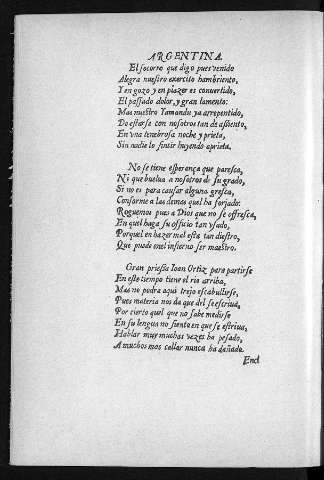 ARGENTINA.
El socorro que digo pues venido
Alegra nuestro exercito hambriento,
Y en gozo y en plazer es convertido,
El passado dolor, y gran lamento:
Mas nuestro Yamandu ya arrepentido,
De estarse con nosotros tan de assiento,
En vna tenebrosa noche y prieta,
Sin nadie lo sintir huyendo aprieta.
No se tiene esperança que paresca,
Ni que buelua a nosotros de su grado,
Si no es para causar alguna gresca,
Conforme a las demas quel ha forjado.
Roguemos pues a Dios que no se offresca,
En quel haga su officio tan vsado,
Porquel en hazer mal està tan diestro,
Que puede enel infierno ser maestro.
Gran priessa Ioan Ortiz para partirse
En este tiempo tiene el rio arriba,
Mas no podra aqui trejo escabullirse,
Pues materia nos da que del se escriua,
Por cierto quel que no sabe medirse
En su lengua no siento en que se estriua,
Hablar muy muchas vezes ha pesado,
A muchos mas callar nunca ha dañado.
End